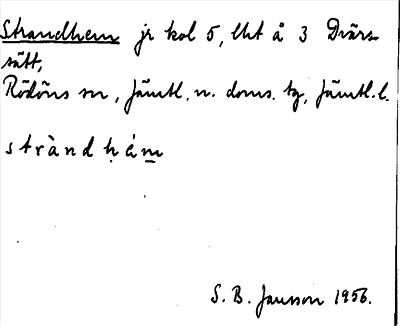 Strandhem jr kol 5, lht å 3 Dvärs-
sätt,
Rödöns sn, Jämtl. n. doms. tg, Jämtl. l.
stràndḥém̲
S. B. Jansson 1956.